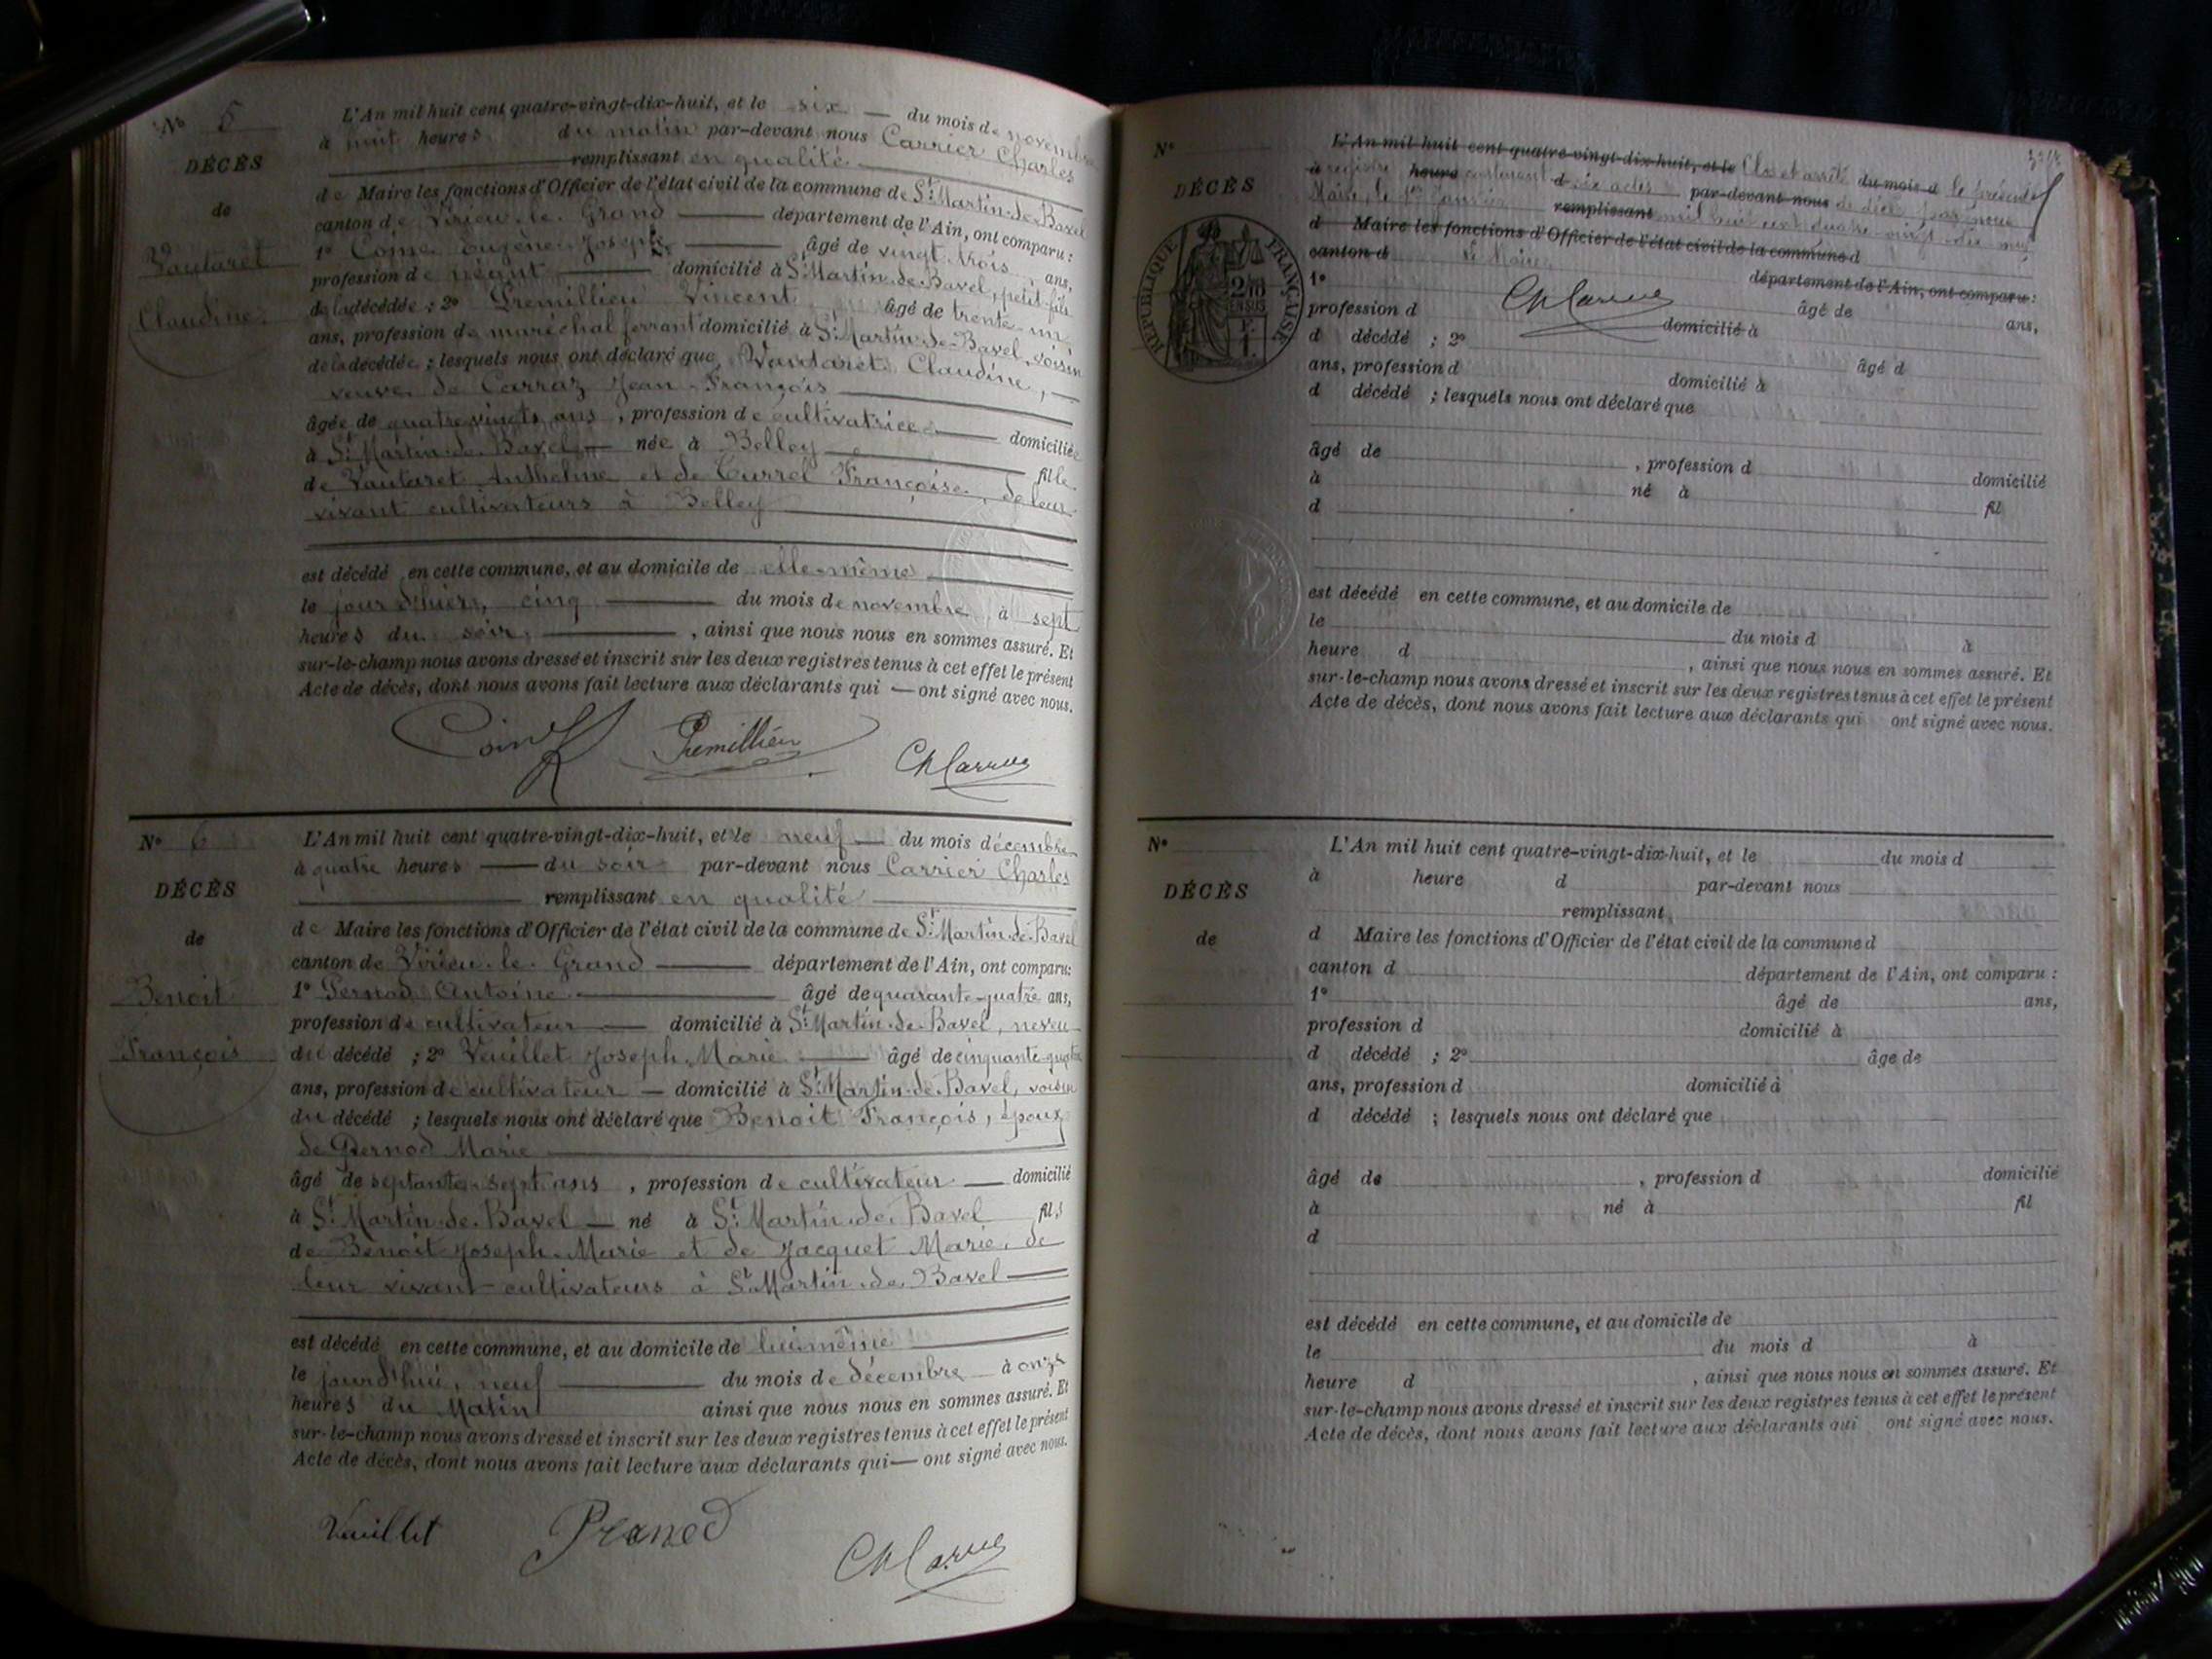 N° 5
DÉCÈS
de
Vautaret
Claudine
L'An mil huit cent quatre-vingt-dix-huit, et le six — du mois de novembre
à huit heures du matin par-devant nous Carrier Charles
remplissant en qualité
de Maire les fonctions d'Officier de l'état civil de la commune de St Martin-de-Bavel
canton de Virieu-le-Grand — département de l'Ain, ont comparu :
1° Eugène Joseph — âgé de vingt trois ans,
profession de négont — domicilié à St Martin-de-Bavel, petit-fils
de la décédée ; 2° Premillieu Vincent âgé de trente-un
ans, profession de maréchal ferrant domicilié à St Martin-de-Bavel, voisin
de la décédée ; lesquels nous ont déclaré que Vautaret Claudine, —
veuve de Carraz Jean-François
âgée de quatre vingts ans, profession de cultivatrice — domiciliée
à St Martin-de-Bavel — née à Belley — fille
de Vautaret Anthelme et de Currel Françoise, de leur
vivant cultivateurs à Belley
est décédé en cette commune, et au domicile de elle-même
le jour d'hier, cinq — du mois de novembre à sept
heures du soir, — , ainsi que nous nous en sommes assuré. Et
sur-le-champ nous avons dressé et inscrit sur les deux registres tenus à cet effet le présent
Acte de décès, dont nous avons fait lecture aux déclarants qui — ont signé avec nous.
Premillieu Ch Carrier
N° 6
DÉCÈS
de
Benoit
François
L'An mil huit cent quatre-vingt-dix-huit, et le neuf — du mois décembre
à quatre heures — du soir par-devant nous Carrier Charles
remplissant en qualité
de Maire les fonctions d'Officier de l'état civil de la commune de St Martin-de-Bavel
canton de Virieu-le-Grand — département de l'Ain, ont comparu :
1° Pernod Antoine — âgé de quarante-quatre ans,
profession de cultivateur — domicilié à St Martin-de-Bavel, neveu
du décédé ; 2° Veuillet Joseph-Marie — âgé de cinquante-quatre
ans, profession de cultivateur — domicilié à St Martin-de-Bavel, voisin
du décédé ; lesquels nous ont déclaré que Benoit François, époux
de Pernod Marie
âgé de septante-sept ans, profession de cultivateur — domicilié
à St Martin-de-Bavel — né à St Martin-de-Bavel fils
de Benoit Joseph-Marie et de Jacquet Marie, de
leur vivant cultivateurs à St Martin-de-Bavel —
est décédé en cette commune, et au domicile de lui-même
le jourd'hui, neuf — du mois de décembre à onze
heures du Matin ainsi que nous nous en sommes assuré. Et
sur-le-champ nous avons dressé et inscrit sur les deux registres tenus à cet effet le présent
Acte de décès, dont nous avons fait lecture aux déclarants qui — ont signé avec nous.
Veuillet Pernod Ch Carrier
N°
DÉCÈS
RÉPUBLIQUE FRANÇAISE
L'An mil huit cent quatre-vingt-dix-huit, et le Clos et arrêté du mois d le présent
à registre heure contenant d six actes par-devant nous de décès par nous
Maire, le 1er Janvier remplissant mil huit cent quatre-vingt-dix neuf
d Maire les fonctions d'Officier de l'état civil de la commune d
canton d Le Maire département de l'Ain, ont comparu :
1° Ch Carrier âgé de ans,
profession d domicilié à
d décédé ; 2° âgé d
ans, profession d domicilié à
d décédé ; lesquels nous ont déclaré que
âgé de , profession d domicilié
à né à fil
d
est décédé en cette commune, et au domicile de
le du mois d à
heure d , ainsi que nous nous en sommes assuré. Et
sur-le-champ nous avons dressé et inscrit sur les deux registres tenus à cet effet le présent
Acte de décès, dont nous avons fait lecture aux déclarants qui ont signé avec nous.
N°
DÉCÈS
de
L'An mil huit cent quatre-vingt-dix-huit, et le du mois d
à heure d par-devant nous
remplissant
d Maire les fonctions d'Officier de l'état civil de la commune d
canton d département de l'Ain, ont comparu :
1° âgé de ans,
profession d domicilié à
d décédé ; 2° âge de
ans, profession d domicilié à
d décédé ; lesquels nous ont déclaré que
âgé de , profession d domicilié
à né à fil
d
est décédé en cette commune, et au domicile de
le du mois d à
heure d , ainsi que nous nous en sommes assuré. Et
sur-le-champ nous avons dressé et inscrit sur les deux registres tenus à cet effet le présent
Acte de décès, dont nous avons fait lecture aux déclarants qui ont signé avec nous.